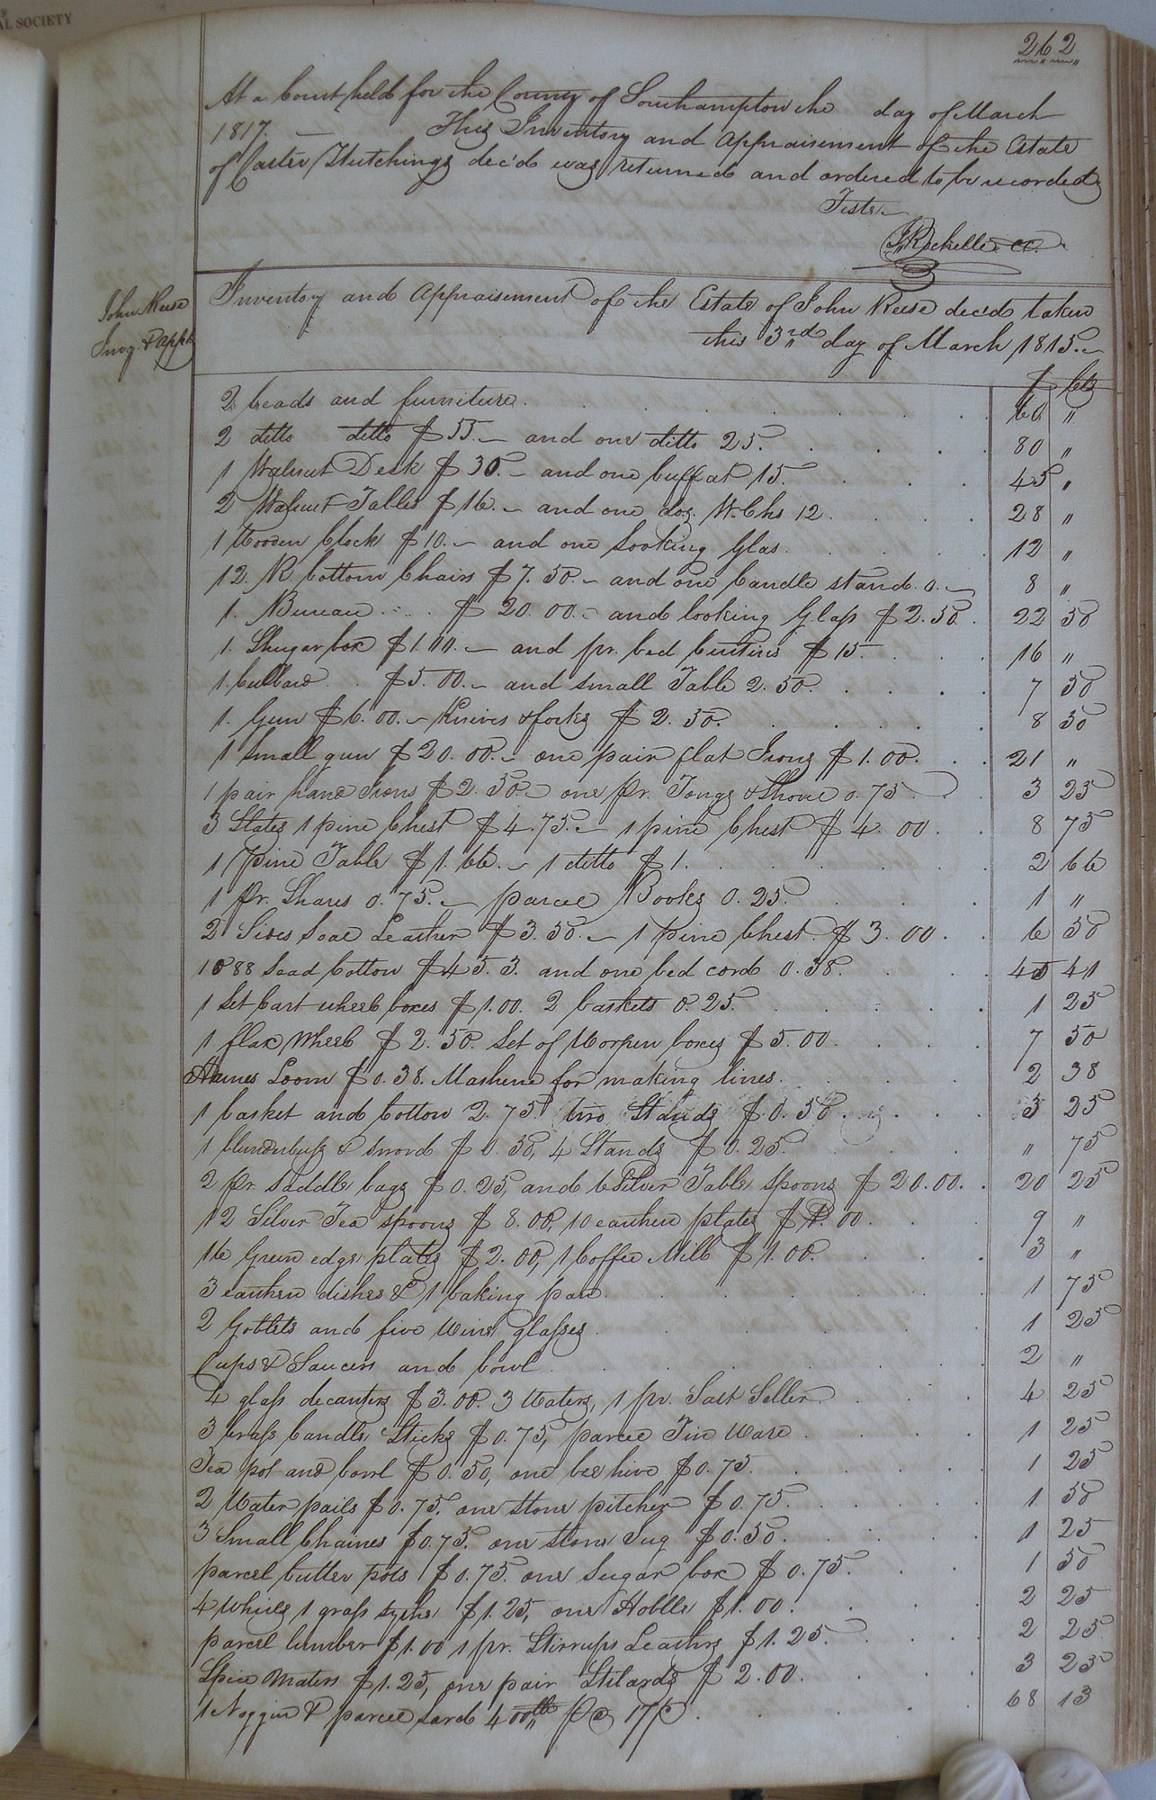 AL SOCIETY
262
At a Court held for the County of Southampton the day of March
1817. This Inventory and Appraisement of the Estate
of Carter Hutchings dec'd was returned and ordered to be recorded
Teste
J. Rochelle cc.
John Reese
Invy. & Appt.
Inventory and Appraisement of the Estate of John Reese decd taken
this 3rd day of March 1815.
$ Cts
2 beads and furniture. 60 "
2 ditto ditto $55.- and one ditto 25. 80 "
1 Walnut Desk $30.- and one buffat 15. 45 "
2 Walnut Tables $16.- and one doz. W. Chs 12. 28 "
1 Wooden Clock $10.- and one Looking Glas. 12 "
12 R bottom Chairs $7.50.- and one Candle stand 0.- 8 "
1. Bureau $20.00.- and looking Glass $2.50. 22 50
1. Shugar box $1.00.- and pr. bed Curtins $15. 16 "
1. Cubbard $5.00.- and small Table 2.50. 7 50
1. Gun $6.00.- Knives & forks $2.50. 8 50
1 small gun $20.00.- one pair flat Irons $1.00. 21 "
1 pair hand Irons $2.50.- one Pr. Tongs & Shovel 0.75 3 25
3 Slates 1 pine Chest $4.75.- 1 pine Chest $4.00. 8 75
1 Pine Table $1.66.- 1 ditto $1. 2 66
1 Pr. Shares 0.75.- parcel Books 0.25. 1 "
2 Sides Soal Leather $3.50.- 1 Pine Chest. $3.00. 6 50
1088 Sead Cotton $45.3. and one bed cord 0.38. 45 41
1 Set Cart wheel boxes $1.00. 2 baskets 0.25. 1 25
1 flax Wheel $2.50. Set of Worpen boxes $5.00. 7 50
Loom $0.38. Mashene for making lines. 2 38
1 basket and Cotton 2.75 two Stands $0.50. 3 25
1 blunderbuss & sword $0.50, 4 Stands $0.25. " 75
2 Pr. saddle bags $0.25, and 6 Silver Table spoons $20.00. 20 25
12 Silver Tea spoons $8.00, 10 earthen plates $1.00. 9 "
16 Green edge plates $2.00, 1 Coffee Mill $1.00. 3 "
3 earthen dishes & 1 baking pan 1 75
2 Goblets and five wine glasses 1 25
Cups & Saucers and bowl 2 "
4 glass decanters $3.00. 3 Waters, 1 pr. Salt Seller 4 25
3 brass Candle Sticks $0.75, parcel Tin Ware 1 25
Tea pot and bowl $0.50, one bee hive $0.75. 1 25
2 Water pails $0.75. one stone pitcher $0.75. 1 50
3 Small Chaines $0.75. one stone Jug $0.50. 1 25
parcel butter pots $0.75. one sugar box $0.75. 1 50
4 1 grass sythe $1.25, one $1.00. 2 25
parcel lumber $1.00 1 pr. Stirrups Leathrs $1.25. 2 25
Spice Maters $1.25, one pair Stilards $2.00. 3 25
1 Noggin & parcel Lard 400lb @ 17 68 13